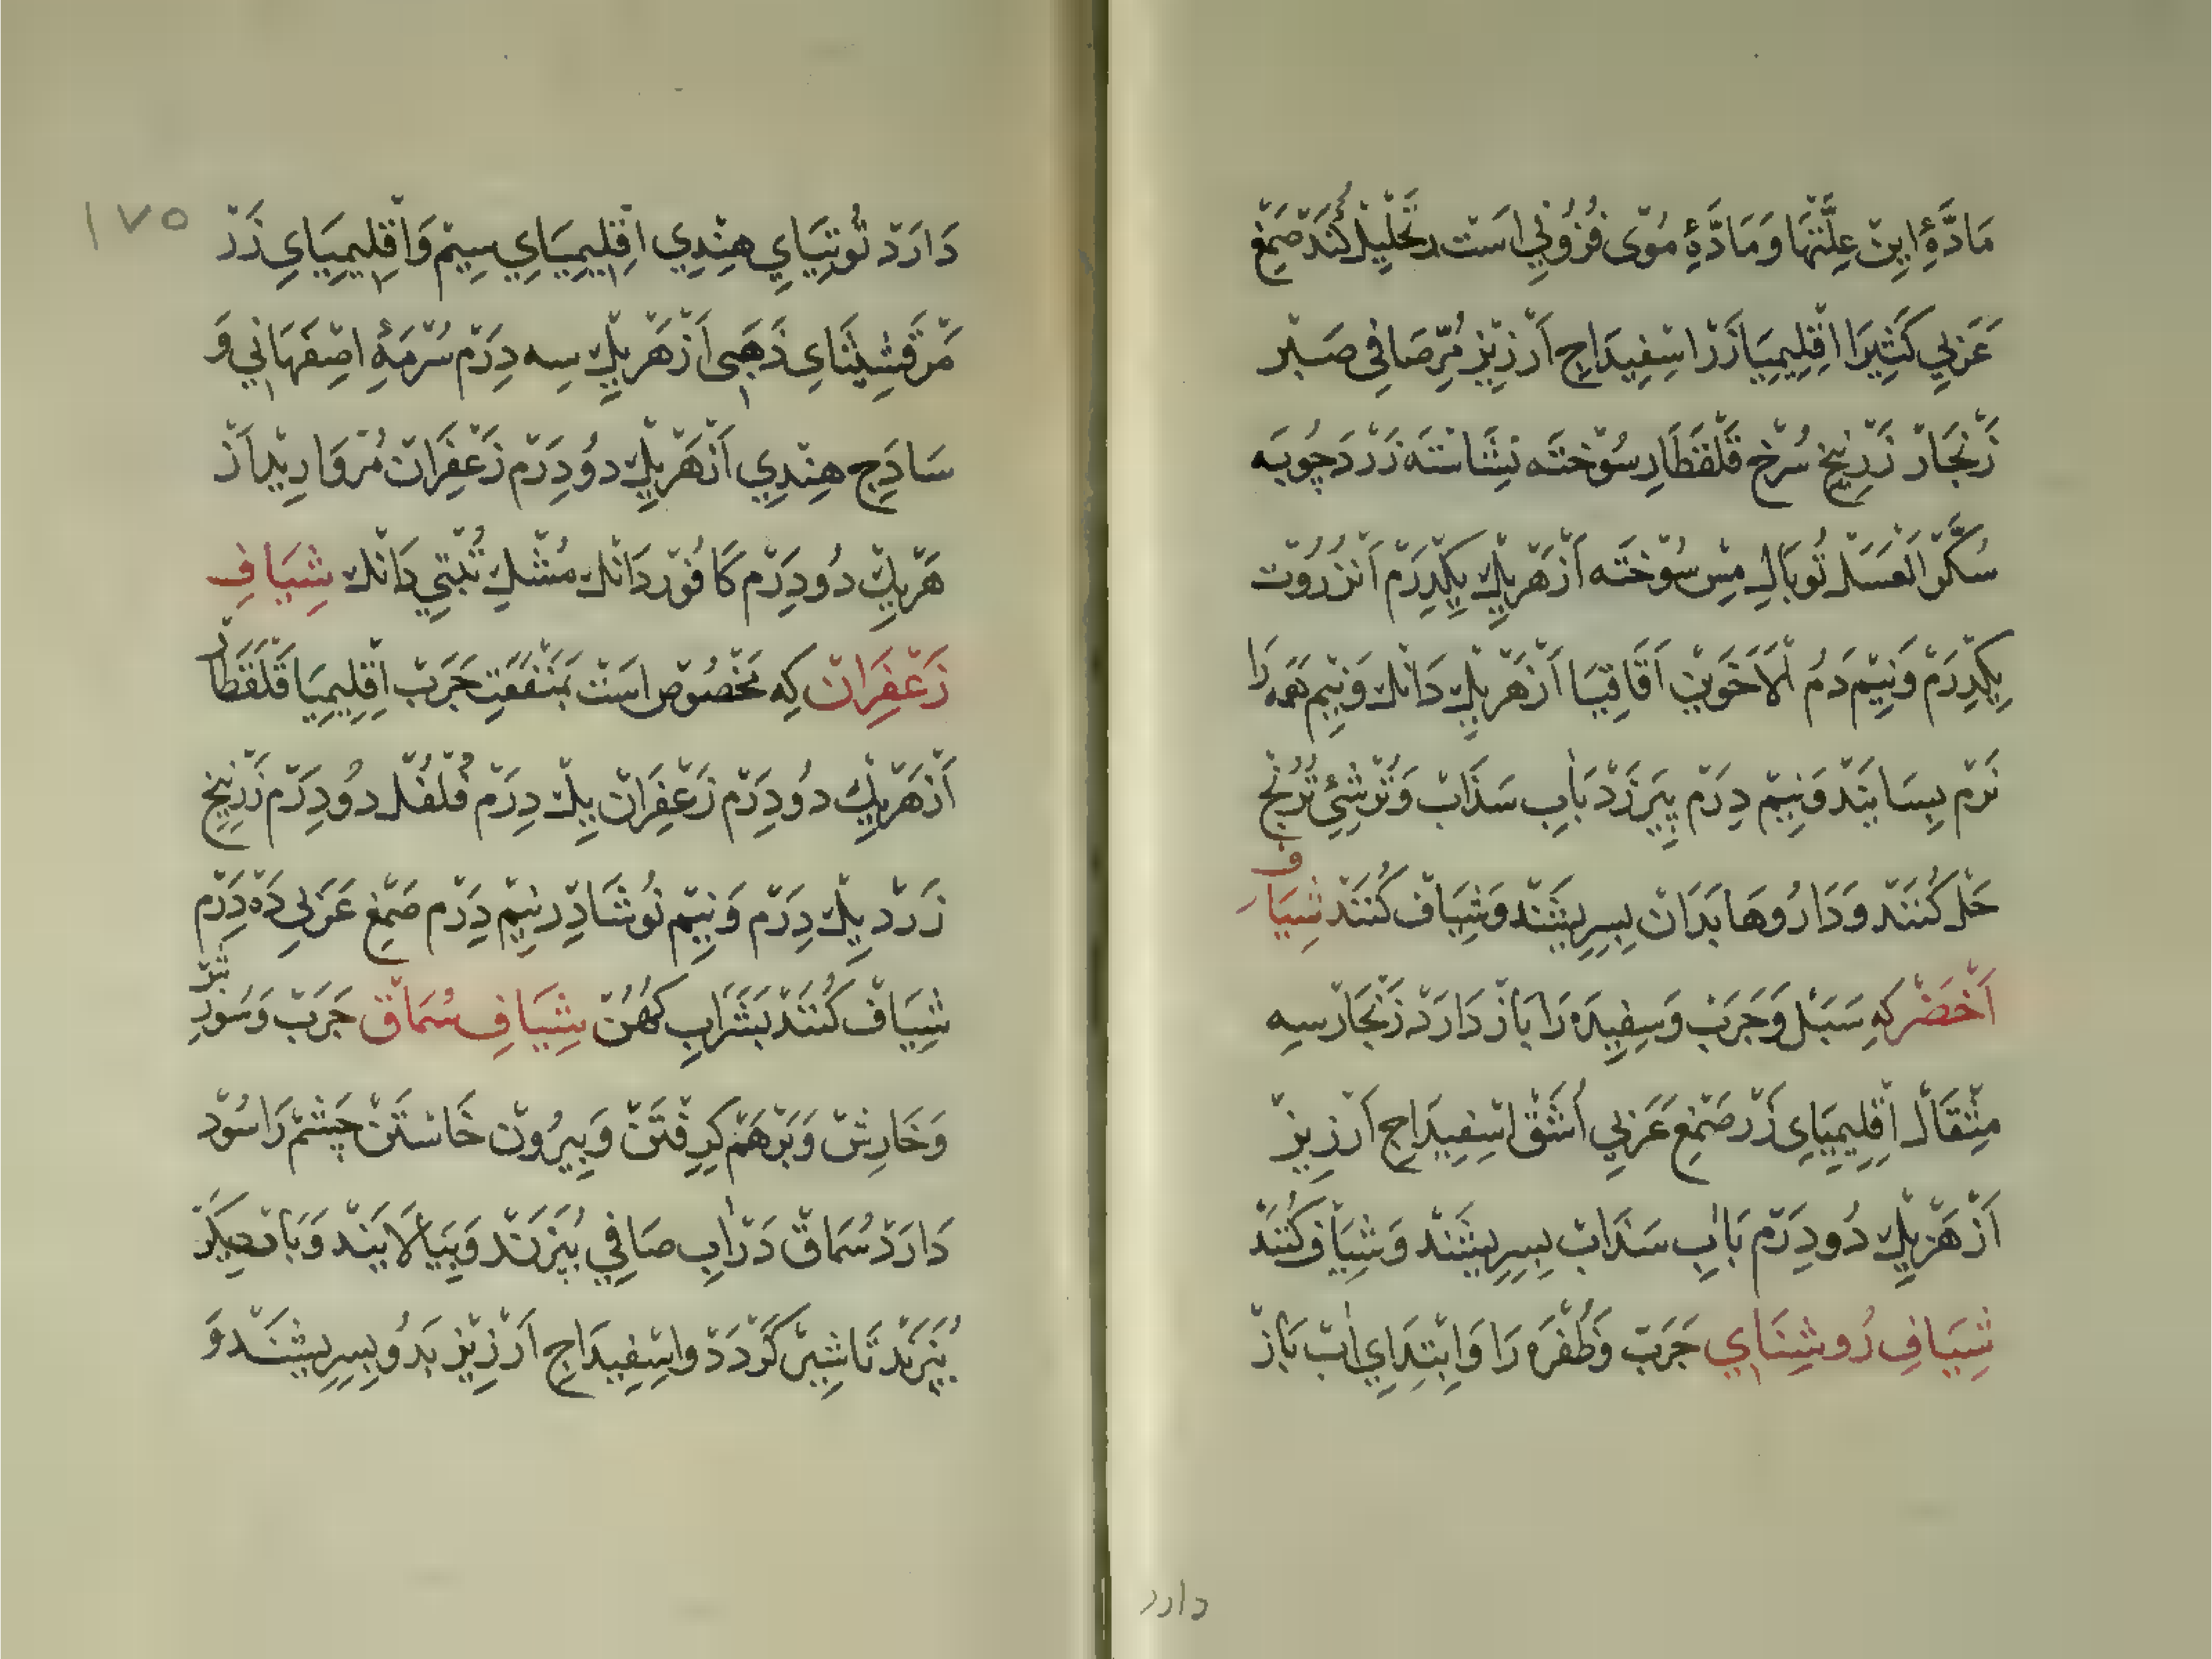 مَادَّهٔ اِینْ عِلَّتْهَا وَمَادَّهٔ مُوْی فُزُونِي اسَت تَحْلِیْلْ کُنَدْ صَمْغِ
عَرَبِي کَثِیْرَا اِقْلِیمِیَا زَرْ اِسْفِیدَاجِ اَرْزِیْزْ مُرِّ صَافِی صَبْر
زَنْجَارْ زَرْنِیخِ سُرْخ قَلْقَطَارِ سُوْخْتَه نِشَاسْتَه زَرْدَچُوبَه
سُکَّرْ الْعَسَلْ تُوبَالِ مِسِ سُوْخْتَه اَزْ هَرْیِكْ یِکْدِرَمْ اَنْزَرُوْت
یِکْدِرَمْ وَنِیْم دَمُ الْاَخَوَیْنْ اَقَاقِیَا اَزْ هَرْیِكْ دَانْك وَنِیْم هَمَه رَا
نَرْم بِسَایَنْد وَنِیْم دِرَمْ بِیَرْزَدْ بَابِ سَذَابْ وَتُرْشِئِ تُرُنْج
حَلْ کُنَنْد وَدَارُوهَا بَدَانْ بِسِرِیشَنْد وَشِیَافْ کُنَنْدْ شِیَاف
اَخْضَرْ کِه سَبَلْ وَجَرَبْ وَسِفِیْدَه رَا بَازْ دَارَدْ زَنْجَارْ سِه
مِثْقَالْ اِقْلِیمِیَایِ زَرْ صَمْغِ عَرَبِي اُشَقْ اِسْفِیدَاجِ اَرْزِیزْ
اَزْ هَرْیِكْ دُو دِرَمْ بَابِ سَذَابْ بِسِرِیشَنْد وَشِیَافْ کُنَنْد
شِیَافِ رُوشِنَايِي جَرَبْ وَظُفْرَه رَا وَابْتِدَايِ ابْ بَازْ
دارد
١٧٥
دَارَدْ تُوتِیَايِ هِنْدِي اِقْلِیمِیَايِ سِیم وَاِقْلِیمِیَايِ زَرْ
مَرْقَشِیثَایِ ذَهَبِی اَزْ هَرْیِكْ سِه دِرَمْ سُرْمَهٔ اصِفَهَانِي وَ
سَاذَج هِنْدِي اَزْ هَرْیِكْ دوُ دِرَمْ زَعْفِرَانْ مُرْوَارِیْد اَزْ
هَرْیِكْ دُو دِرَمْ کَافُوْر دَانْك مُشْكِ تُبَّتِي دَانْك شِیَافِ
زَعْفِرَانْ کِه مَخْصُوْص اسَت بَمَنْفَعَتِ جَرَبْ اِقْلِیمِیَا قَلْقَطَار
اَزْ هَرْیِكْ دوُ دِرَمْ زَعْفِرَانْ یِكْ دِرَمْ فُلْفُلْ دوُ دِرَمْ زَرْنِیخِ
زَرْد یِكْ دِرَمْ وَنِیْم نُوشَادِرْ نِیْم دِرَمْ صَمْغِ عَرَبِي دَهْ دِرَمْ
شِیَافْ کُنَنْد بَشَرَابِ کُهُنْ شِیَافِ سُمَاقْ جَرَبْ وَسُوزِشْ
وَخَارِشْ وَبَرْهَمْ گِرِفْتَنْ وَبِیرُونْ خَاسْتَنْ چِشْمْ رَا سُوْد
دَارَدْ سُمَاقْ دَرْابِ صَافِي بُپَزَنْد وَبِیَالَایَنْد وَبَارْ دِیگَرْ
بُپَزَنْد تَا سِتَبْرْ گَرْدَدْ وَاسْفِیدَاجِ اَرْزِیْز بَدُو بِسِرِیشَنْد وَ